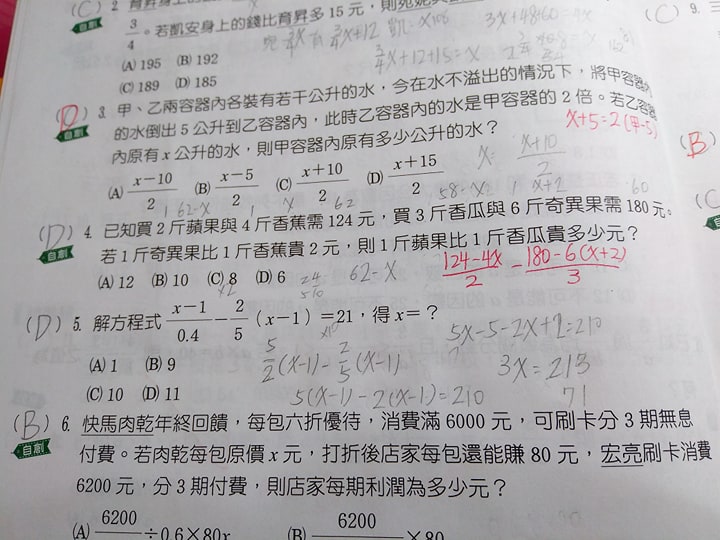 (C) 2 育昇身上的
自創 3/4。若凱安身上的錢比育昇多 15 元,則
(A) 195 (B) 192
(C) 189 (D) 185
3/4x+12+15=x
(D) 3. 甲、乙兩容器內各裝有若干公升的水,今在水不溢出的情況下,將甲容器內
自創 的水倒出 5 公升到乙容器內,此時乙容器內的水是甲容器的 2 倍。若乙容器
內原有 x 公升的水,則甲容器內原有多少公升的水?
x+5=2(甲-5)
(A) x-10/2 (B) x-5/2 (C) x+10/2 (D) x+15/2
x+10/2
(D) 4. 已知買 2 斤蘋果與 4 斤香蕉需 124 元,買 3 斤香瓜與 6 斤奇異果需 180 元。
自創 若 1 斤奇異果比 1 斤香蕉貴 2 元,則 1 斤蘋果比 1 斤香瓜貴多少元?
(A) 12 (B) 10 (C) 8 (D) 6
62-x
124-4x/2 - 180-6(x+2)/3
(D) 5. 解方程式 x-1/0.4 - 2/5 (x-1) =21,得 x=?
自創
(A) 1 (B) 9
(C) 10 (D) 11
5/2(x-1)-2/5(x-1)
5(x-1)-2(x-1)=210
5x-5-2x+2=210
3x=213
71
(B) 6. 快馬肉乾年終回饋,每包六折優待,消費滿 6000 元,可刷卡分 3 期無息
自創 付費。若肉乾每包原價 x 元,打折後店家每包還能賺 80 元,宏亮刷卡消費
6200 元,分 3 期付費,則店家每期利潤為多少元?
(A) 6200 ÷0.6×80x (B) 6200 ×80
(C) 9.
(B)